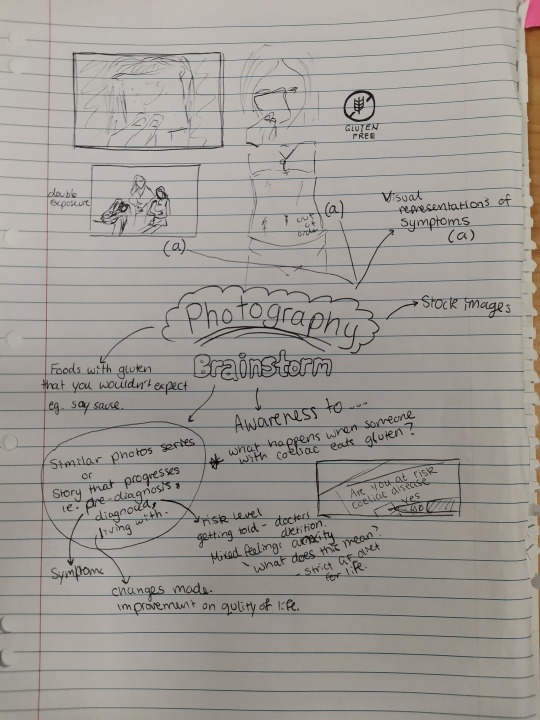 GLUTEN
FREE
double
exposure
out
of
order
(a)
(a)
Visual
representations of
Symptoms
(a)
Photography
Brainstorm
Stock images
Foods with gluten
that you wouldn't expect
eg. soy sause.
Awareness to ....
* what happens when someone
with coeliac eats gluten?
Similar photos series
or
Story that progresses
ie. pre-diagnosis,
diagnosed,
living with.
Are you at risk
coeliac disease
yes
risk level
getting told - doctors
Mixed feelings
"what does this mean?"
- strict GF diet
for life.
Symptoms
changes made.
improvement on qulity of life.